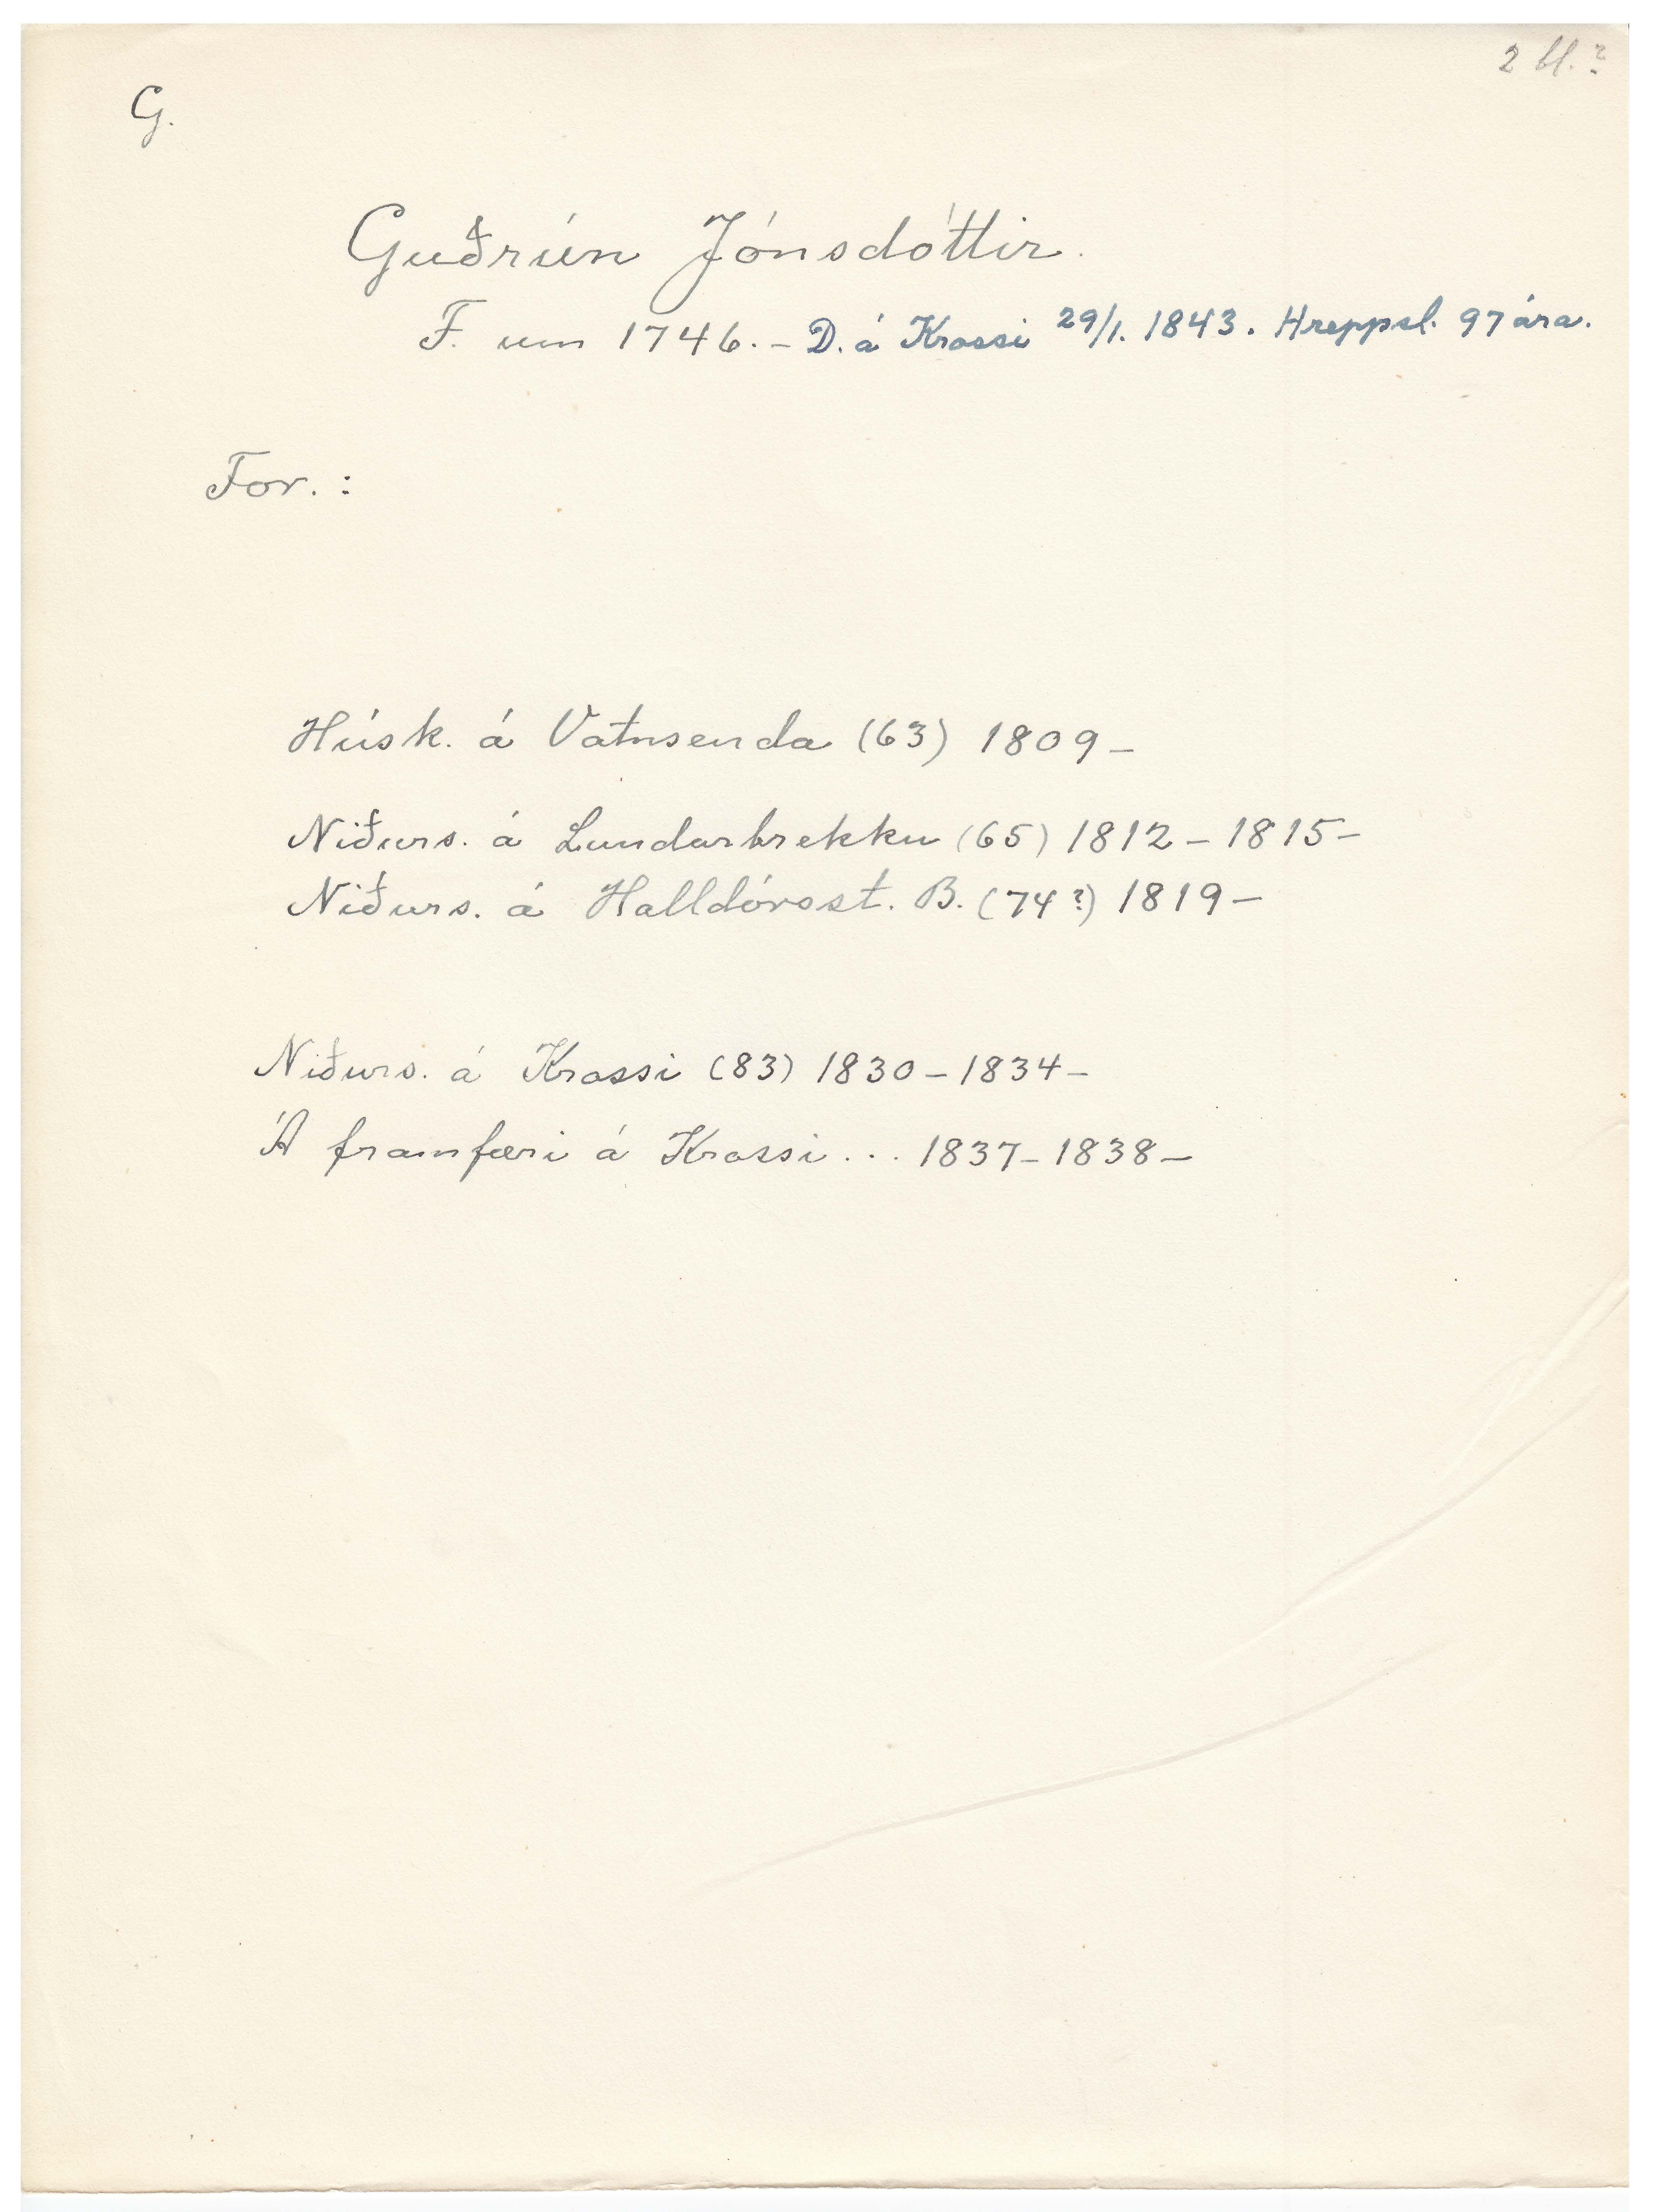 2 bl.?
G.
Guðrún Jónsdóttir.
F. um 1746. - D. á Krossi 29/1. 1843. Hreppsl. 97 ára.
For. :
Húsk. á Vatnsenda (63) 1809 -
Niðurs. á Lundarbrekku (65) 1812 - 1815 -
Niðurs. á Halldórsst. B. (74?) 1819 -
Niðurs. á Krossi (83) 1830 - 1834 -
Á framfæri á Krossi ... 1837 - 1838 -